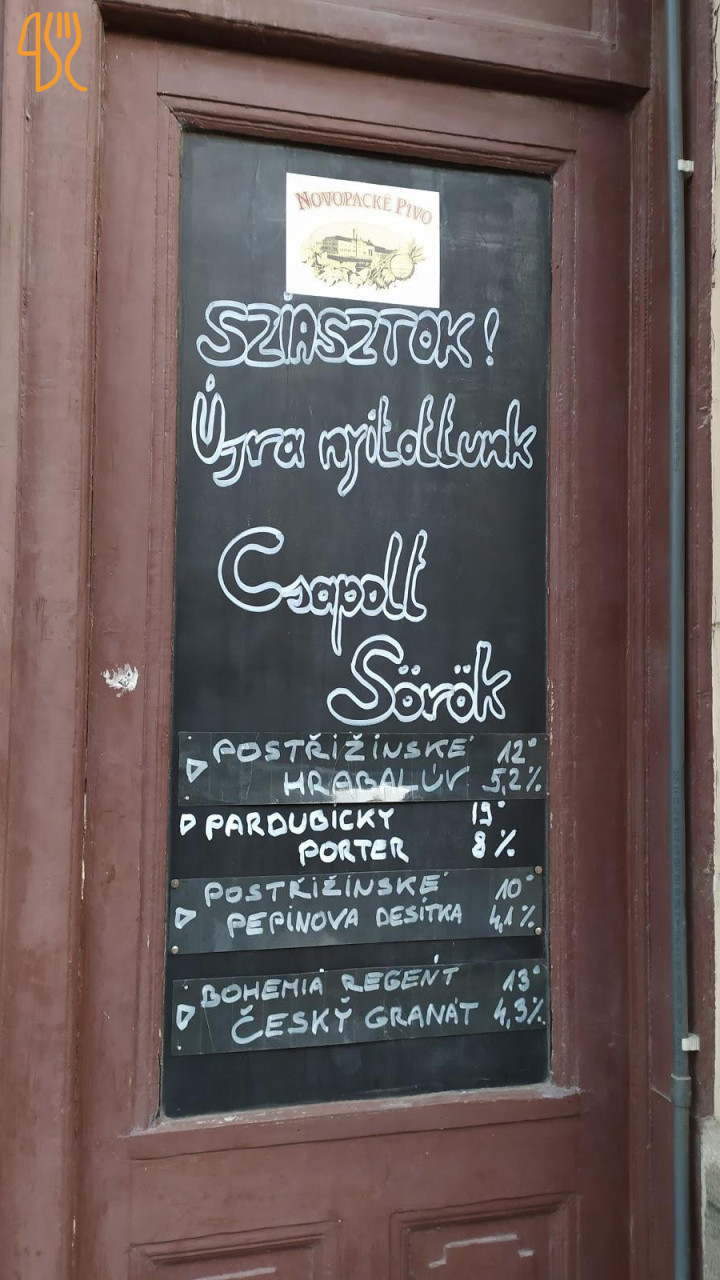 NOVOPACKÉ PIVO
SZIASZTOK!
Újra nyitottunk
Csapolt
Sörök
▷ POSTŘIŽINSKÉ 12°
HRABALŮV 5,2%
▷ PARDUBICKY 19°
PORTER 8%
▷ POSTŘIŽINSKÉ 10°
PEPINOVA DESÍTKA 4,1%
▷ BOHEMIA REGENT 13°
ČESKÝ GRANÁT 4,3%